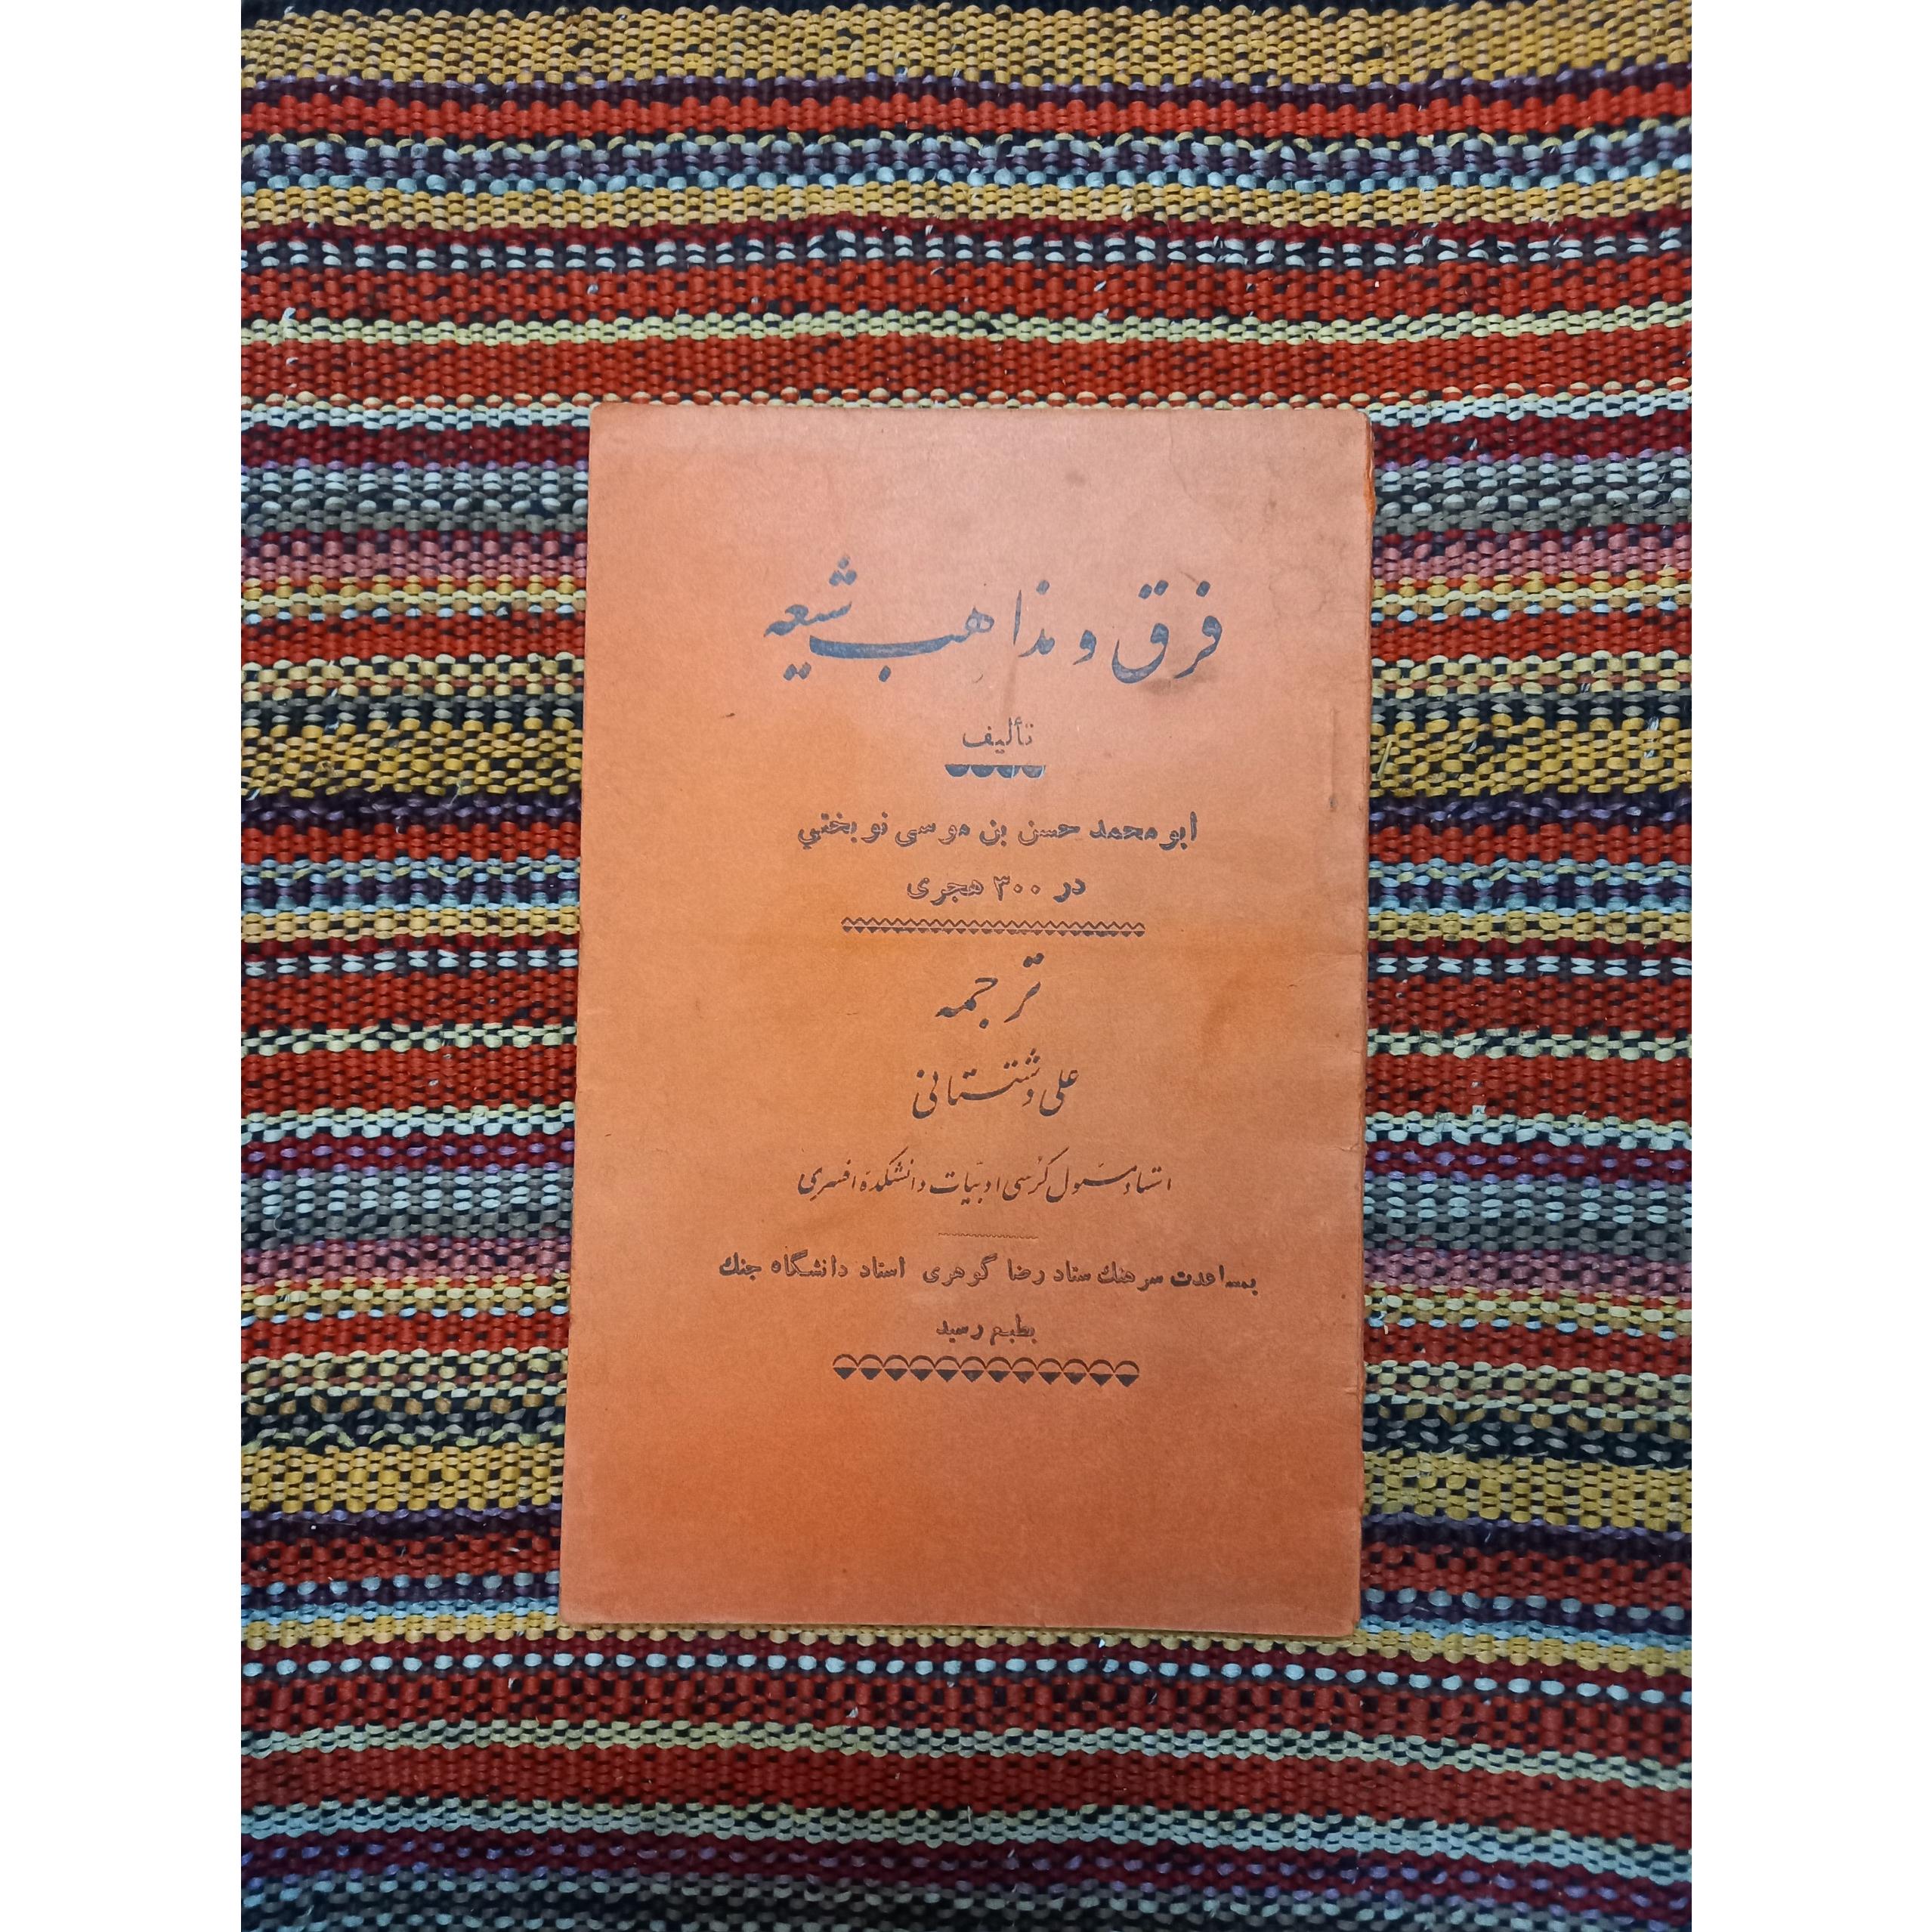 فرق و مذاهب شیعه
تألیف
ابو محمد حسن بن موسی نوبختی
در ۳۰۰ هجری
ترجمه
علی دشتستانی
استاد مسئول کرسی ادبیّات دانشکده افسری
بمساعدت سرهنك ستاد رضا گوهری استاد دانشگاه جنك
بطبع رسید